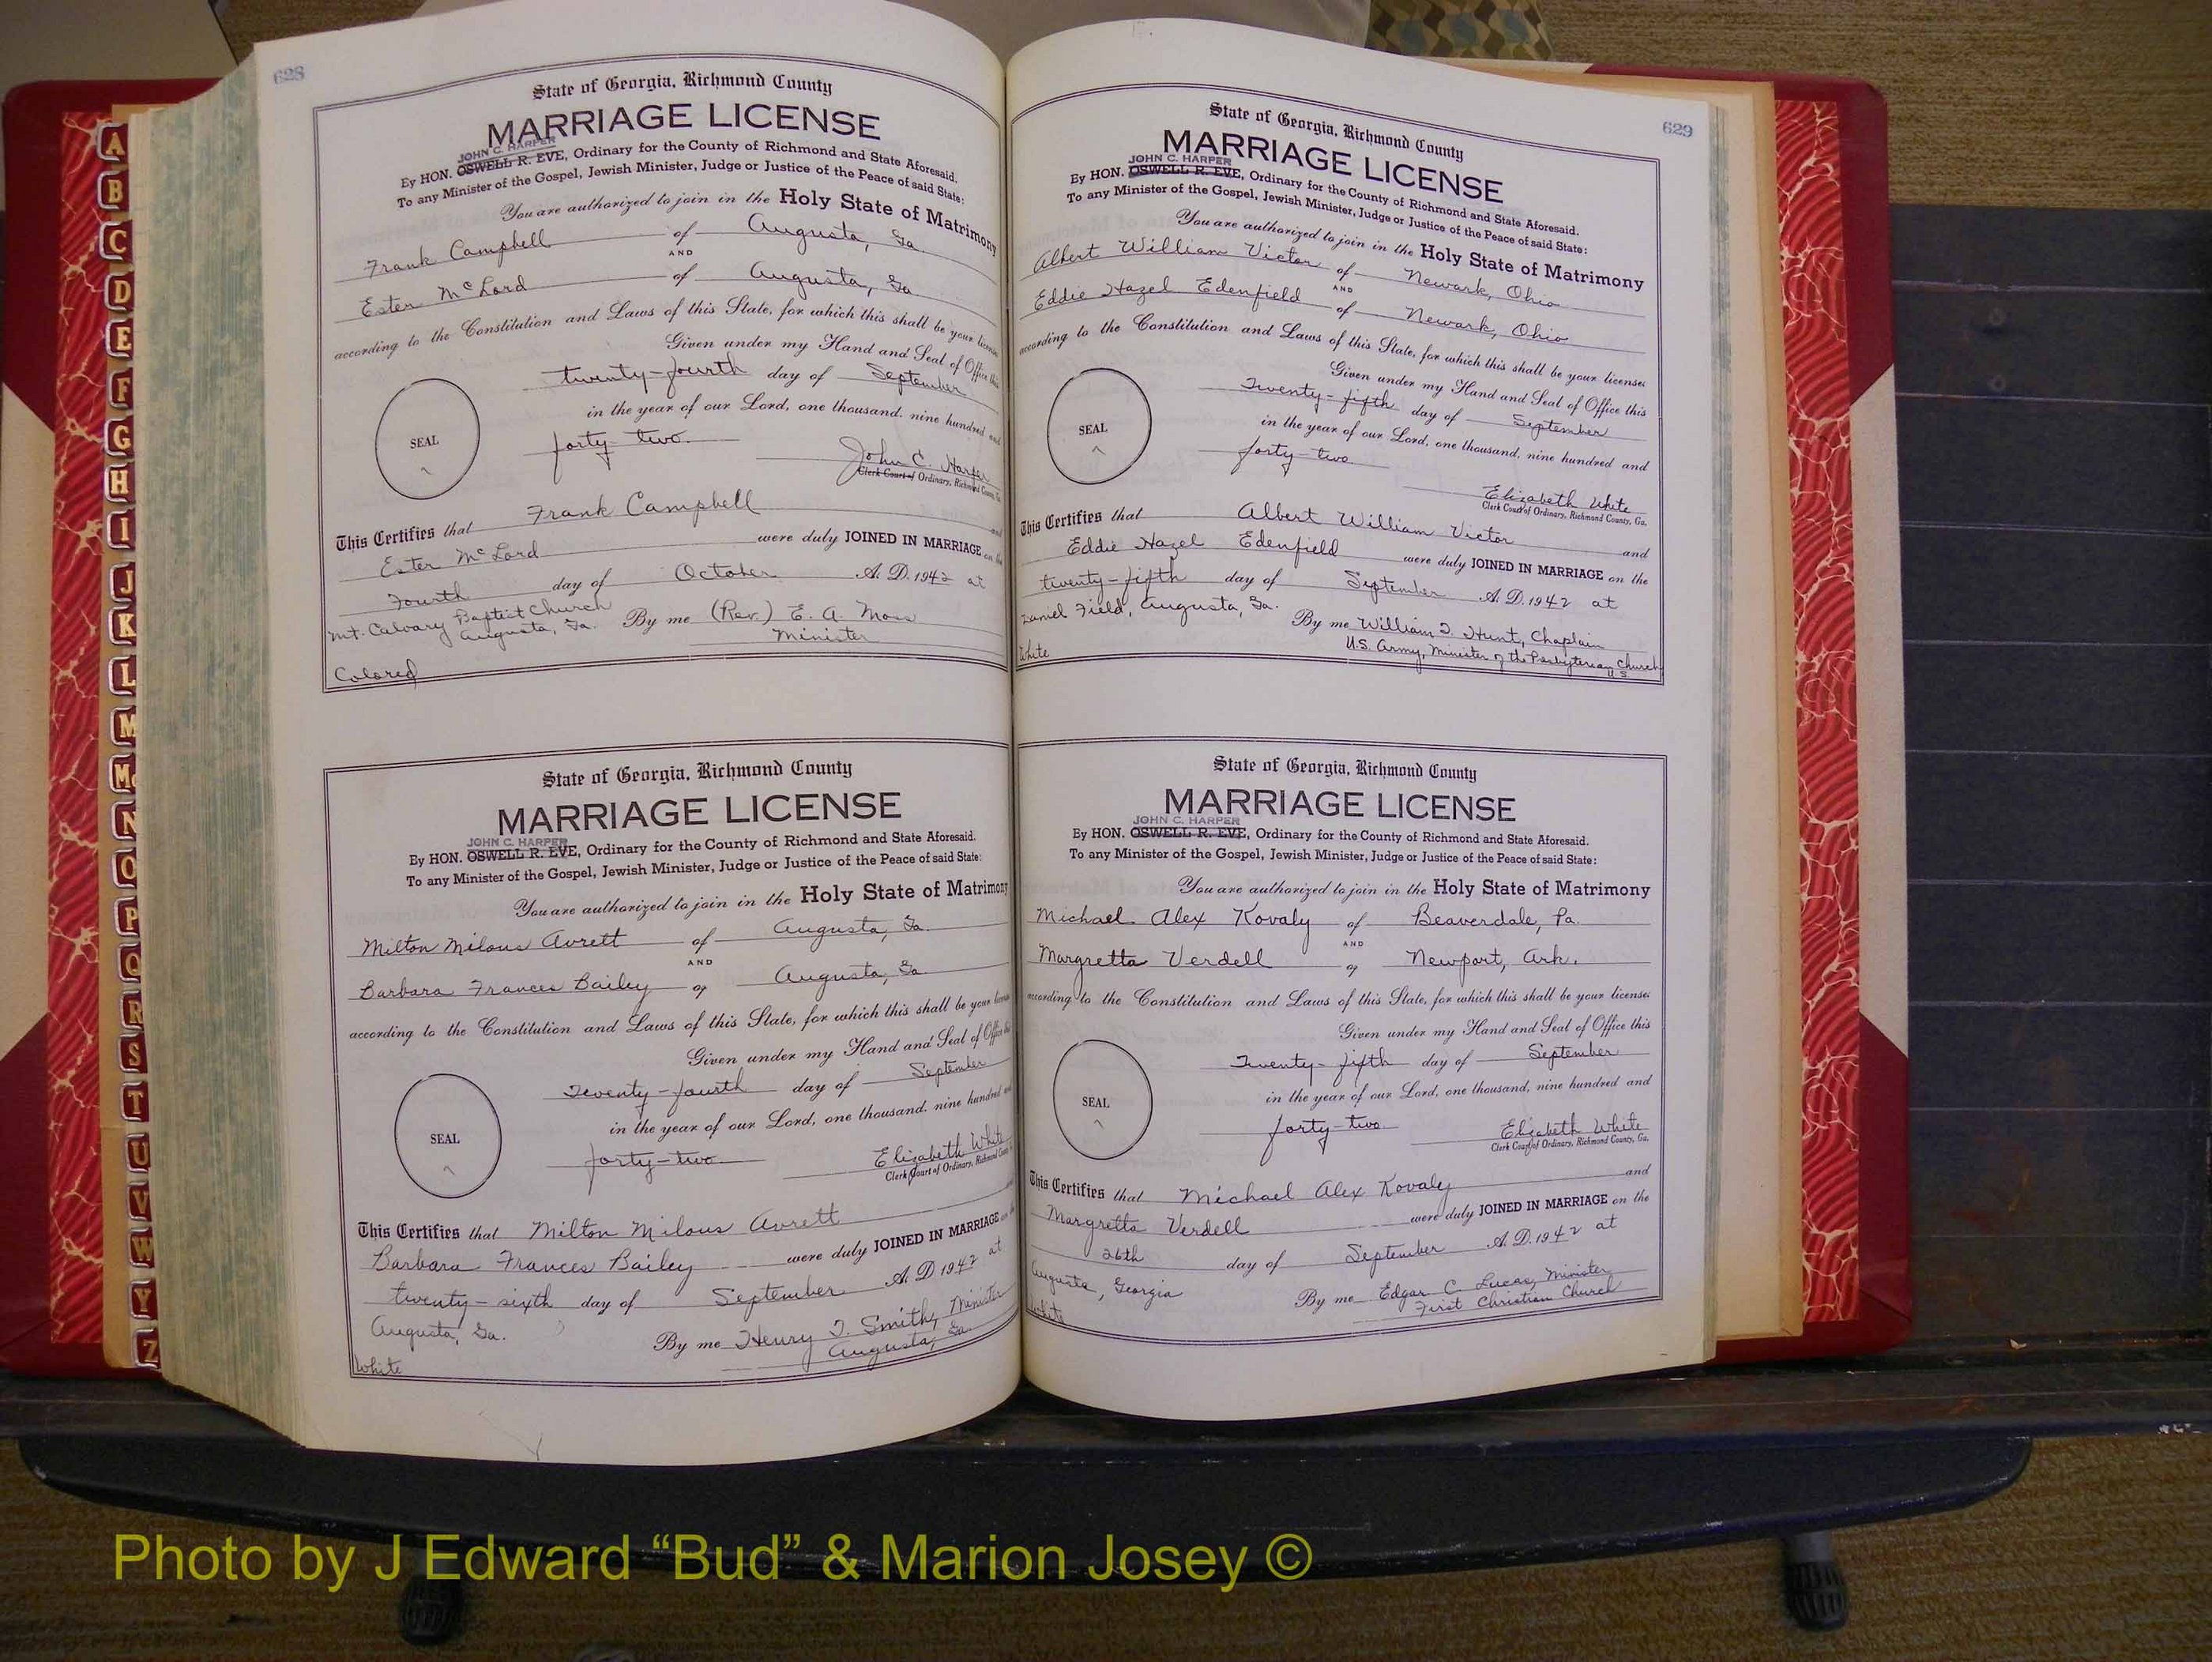 A
B
C
D
E
F
G
H
I
J
K
L
M
Mc
N
O
P
Q
R
S
T
U
V
W
Y
Z
628
State of Georgia, Richmond County
MARRIAGE LICENSE
JOHN C. HARPER
By HON. OSWELL R. EVE, Ordinary for the County of Richmond and State Aforesaid.
To any Minister of the Gospel, Jewish Minister, Judge or Justice of the Peace of said State:
You are authorized to join in the Holy State of Matrimony
Frank Campbell of Augusta, Ga.
AND
Ester McLord of Augusta, Ga
according to the Constitution and Laws of this State, for which this shall be your license
Given under my Hand and Seal of Office this
twenty-fourth day of September
in the year of our Lord, one thousand, nine hundred and
SEAL
forty-two.
John C. Harper
Clerk Court of Ordinary, Richmond County, Ga.
This Certifies that Frank Campbell and
Ester McLord were duly JOINED IN MARRIAGE on the
Fourth day of October A. D. 1942 at
Mt. Calvary Baptist Church
Augusta, Ga. By me (Rev.) E. A. Moss
Minister
Colored
State of Georgia, Richmond County
MARRIAGE LICENSE
JOHN C. HARPER
By HON. OSWELL R. EVE, Ordinary for the County of Richmond and State Aforesaid.
To any Minister of the Gospel, Jewish Minister, Judge or Justice of the Peace of said State:
You are authorized to join in the Holy State of Matrimony
Milton Milous Avrett of Augusta, Ga.
AND
Barbara Frances Bailey of Augusta, Ga.
according to the Constitution and Laws of this State, for which this shall be your license
Given under my Hand and Seal of Office this
Twenty-fourth day of September
in the year of our Lord, one thousand, nine hundred and
SEAL
forty-two
Elizabeth White
Clerk Court of Ordinary, Richmond County
This Certifies that Milton Milous Avrett and
Barbara Frances Bailey were duly JOINED IN MARRIAGE on the
twenty-sixth day of September A. D. 1942 at
Augusta, Ga. By me Henry J. Smith, Minister
Augusta, Ga.
White
629
State of Georgia, Richmond County
MARRIAGE LICENSE
JOHN C. HARPER
By HON. OSWELL R. EVE, Ordinary for the County of Richmond and State Aforesaid.
To any Minister of the Gospel, Jewish Minister, Judge or Justice of the Peace of said State:
You are authorized to join in the Holy State of Matrimony
Albert William Victor of Newark, Ohio
AND
Eddie Hazel Edenfield of Newark, Ohio
according to the Constitution and Laws of this State, for which this shall be your license:
Given under my Hand and Seal of Office this
Twenty-fifth day of September
in the year of our Lord, one thousand, nine hundred and
SEAL
forty-two
Elizabeth White
Clerk Court of Ordinary, Richmond County, Ga.
This Certifies that Albert William Victor and
Eddie Hazel Edenfield were duly JOINED IN MARRIAGE on the
twenty-fifth day of September A. D. 1942 at
Daniel Field, Augusta, Ga. By me William J. Hunt, Chaplain
U.S. Army, Minister of the Presbyterian Church
U S
White
State of Georgia, Richmond County
MARRIAGE LICENSE
JOHN C. HARPER
By HON. OSWELL R. EVE, Ordinary for the County of Richmond and State Aforesaid.
To any Minister of the Gospel, Jewish Minister, Judge or Justice of the Peace of said State:
You are authorized to join in the Holy State of Matrimony
Michael Alex Kovaly of Beaverdale, Pa.
AND
Margretta Verdell of Newport, Ark.
according to the Constitution and Laws of this State, for which this shall be your license:
Given under my Hand and Seal of Office this
Twenty-fifth day of September
in the year of our Lord, one thousand, nine hundred and
SEAL
forty-two
Elizabeth White
Clerk Court of Ordinary, Richmond County, Ga.
This Certifies that Michael Alex Kovaly and
Margretta Verdell were duly JOINED IN MARRIAGE on the
26th day of September A. D. 1942 at
Augusta, Georgia By me Edgar C. Lucas, Minister
First Christian Church
White
Photo by J Edward “Bud” & Marion Josey ©